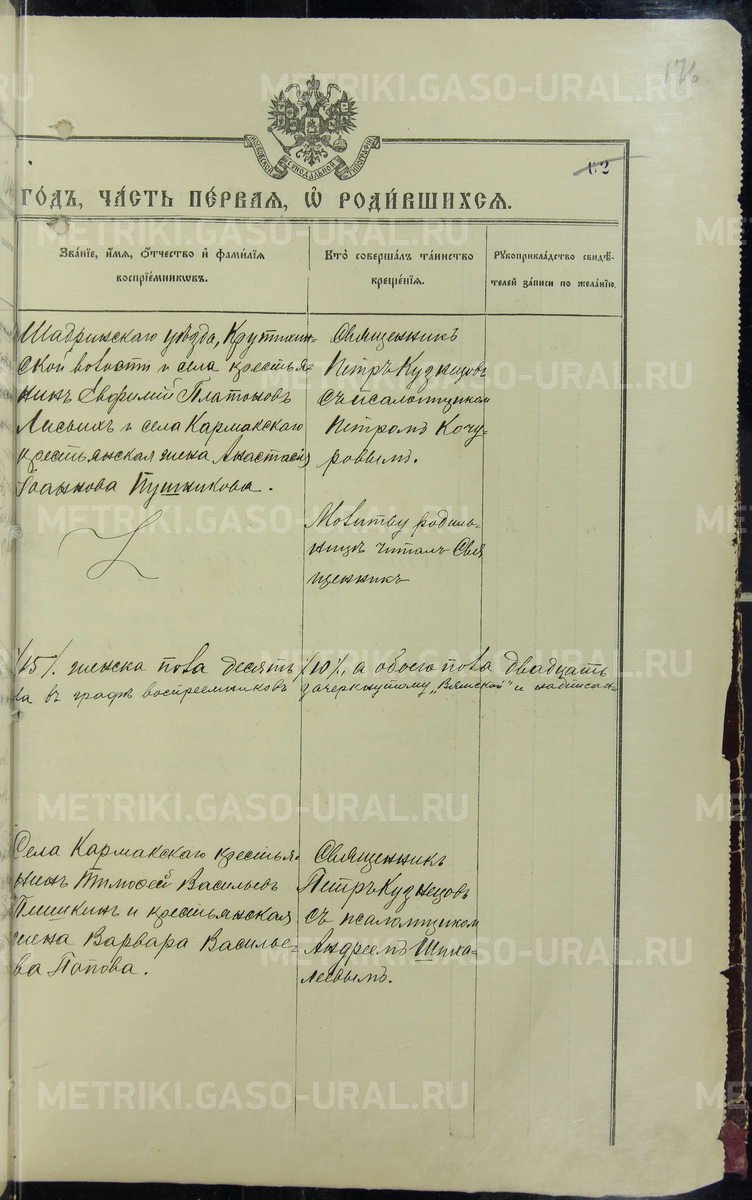 176
62
МОСКОВСКОЙ СѴНОДАЛЬНОЙ ТИПОГРАФІИ
ГОДЪ, ЧАСТЬ ПЕРВАЯ, Ѡ РОДИВШИХСЯ.
Званіе, имя, отчество и фамилія воспріемниковъ.
Кто совершалъ таинство крещенія.
Рукоприкладство свидѣтелей записи по желанію.
Шадринскаго уѣзда, Крутихин-
ской волости и села крестья-
нинъ Евфимій Платоновъ
Лисьихъ и села Кармакскаго
крестьянская жена Анастасія
Іоаннова Пушникова.
Священникъ
Петръ Кузнецовъ
съ псаломщикомъ
Петромъ Кочу-
ровымъ.
Молитву родиль-
ницѣ читалъ Свя
щенникъ
/15/. женска пола десять /10/, а обоего пола двадцать
ла въ графѣ воспреемниковъ зачеркнутому „Вятской" и надписан-
Села Кармакскаго крестья-
нинъ Тимофей Васильевъ
Плишкинъ и крестьянская
жена Варвара Василье-
ва Попова.
Священникъ
Петръ Кузнецовъ
съ псаломщикомъ
Андреемъ Шиха-
леевымъ.
METRIKI.GASO-URAL.RU